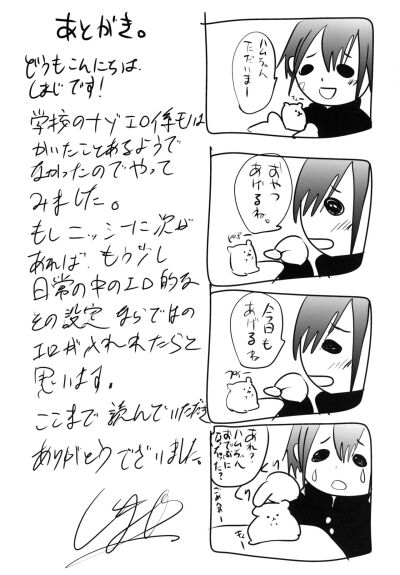 あとがき。
どうもこんにちは、
しまじです!
学校のナゾエロ係もは
かいたことあるようで
なかったのでやって
みました。
もしニッシーに次が
あれば、もう少し
日常の中のエロ的な
その設定ならではの
エロが入れれたらと
思います。
ここまで読んでいただき
ありがとうございました。
ハムちゃん
ただいまー
おやつ
あげるね。
今日も
あげるね
あれ?
ハムちゃん